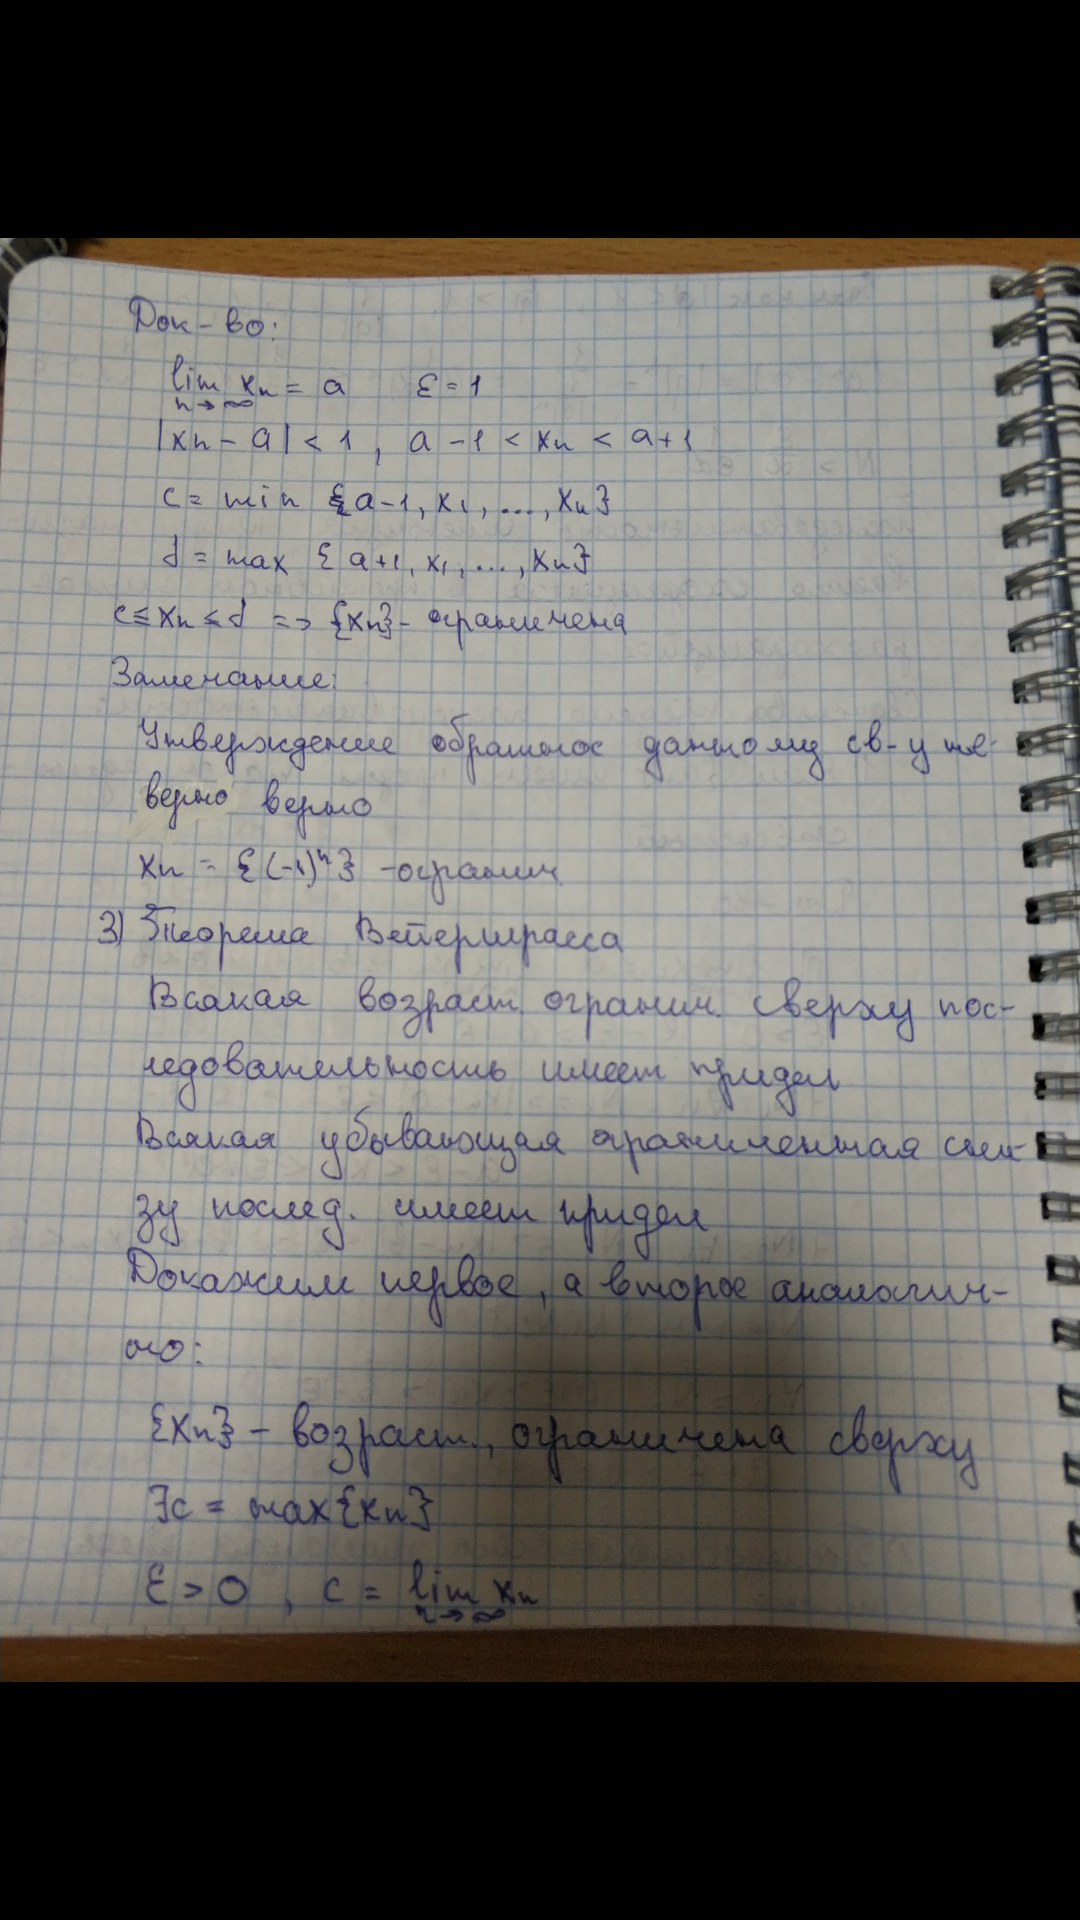 Док-во:
lim xn = a   ε = 1
n→∞
|xn - a| < 1, a - 1 < xn < a + 1
c = min {a-1, x1, ..., xn}
d = max {a+1, x1, ..., xn}
c ≤ xn ≤ d => {xn} - ограничена
Замечание:
Утверждение обратное данному св-у не-
верно верно
xn = {(-1)ⁿ} - огранич
3) Теорема Вейерштрасса
Всякая возраст. огранич. сверху пос-
ледовательность имеет придел
Всякая убывающая ограниченная сни-
зу послед. имеет придел
Докажим первое, а второе аналогич-
но:
{xn} - возраст., ограничена сверху
∃c = max{xn}
ε > 0, c = lim xn
n→∞